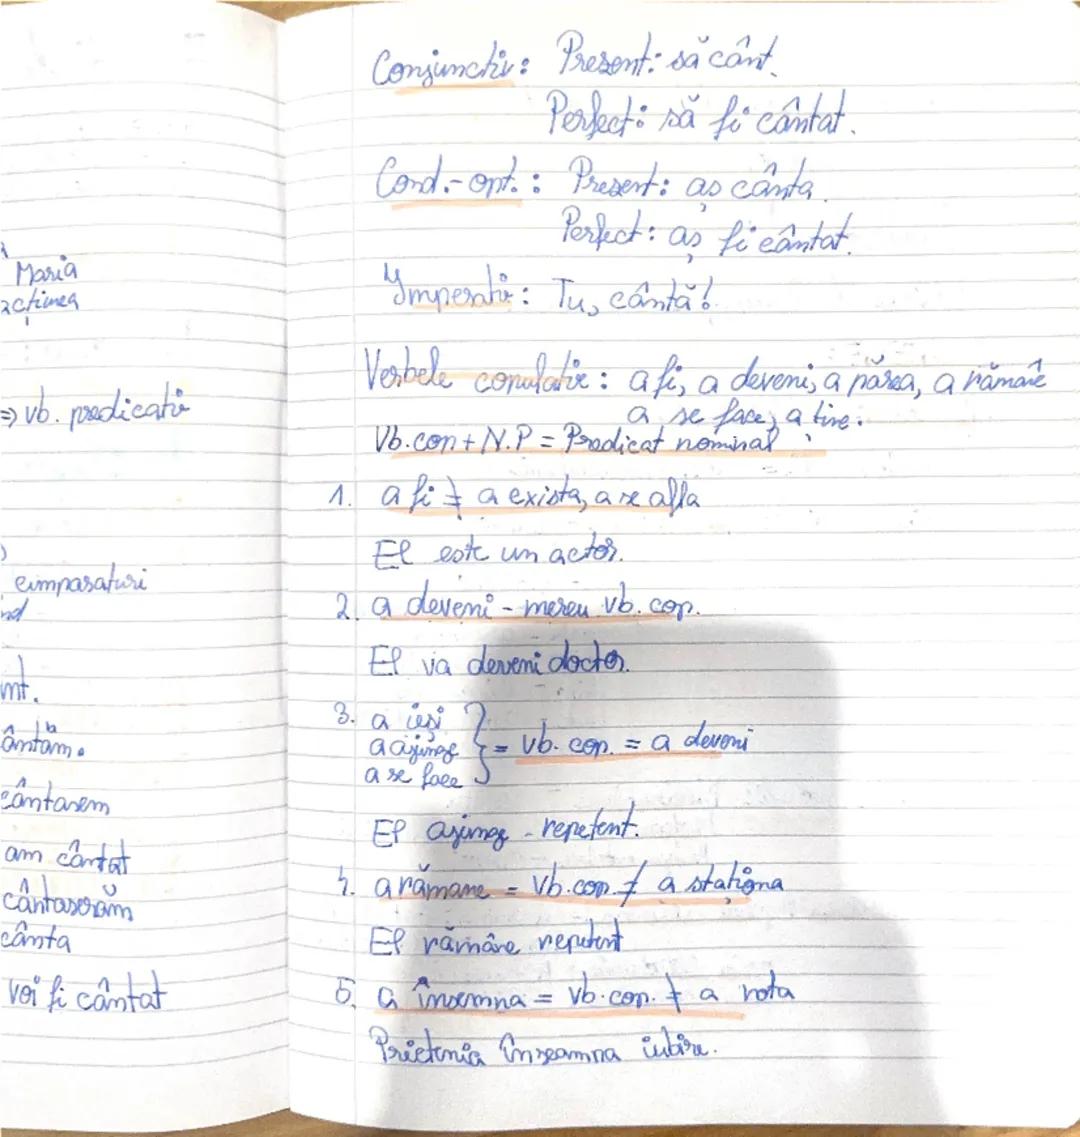 Maria
acțiunea
=> vb. predicativ
cumparaturi
nd
mt.
ântăm.
cântarem
am cântat
cântaserăm
cânta
voi fi cântat
Conjunctiv: Present: să cânt.
Perfect: să fi cântat.
Cond.-opt.: Present: aș cânta.
Perfect: aș fi cântat.
Imperativ: Tu, cântă!
Verbele copulative: a fi, a deveni, a părea, a rămâne
a se face, a tine.
Vb.cop + N.P = Predicat nominal
1. a fi ≠ a exista, a se afla
El este un actor.
2. a deveni - mereu vb. cop.
El va deveni doctor.
3. a ieși
a ajunge } = vb. cop. = a deveni
a se face
El ajunge - repetent.
4. a rămane = vb.cop. ≠ a staționa
El rămâne repetent
5. a însemna = vb.cop. ≠ a nota
Prietenia înseamna iubire.